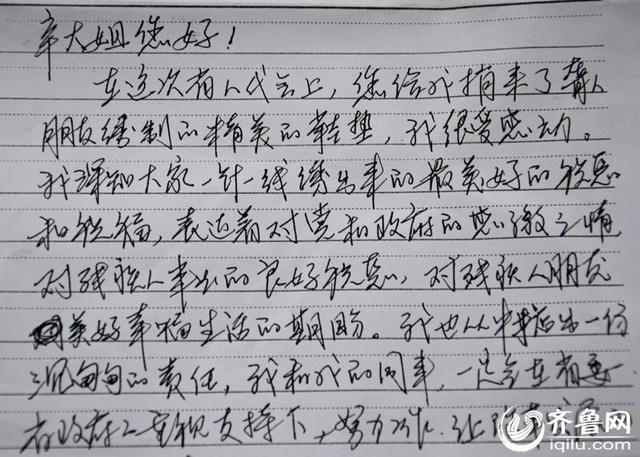 辛大姐您好!
在这次省人代会上,您给我捎来了聋人
朋友绣制的精美的鞋垫,我很受感动。
我深知大家一针一线绣出来的最美好的祝愿
和祝福,表达着对党和政府的感激之情
对残疾人事业的良好祝愿,对残疾人朋友
美好幸福生活的期盼。我也从中掂出一份
沉甸甸的责任,我和我的同事,一定会在省委
省政府重视支持下,努力工作,让
齐鲁网
iqilu.com